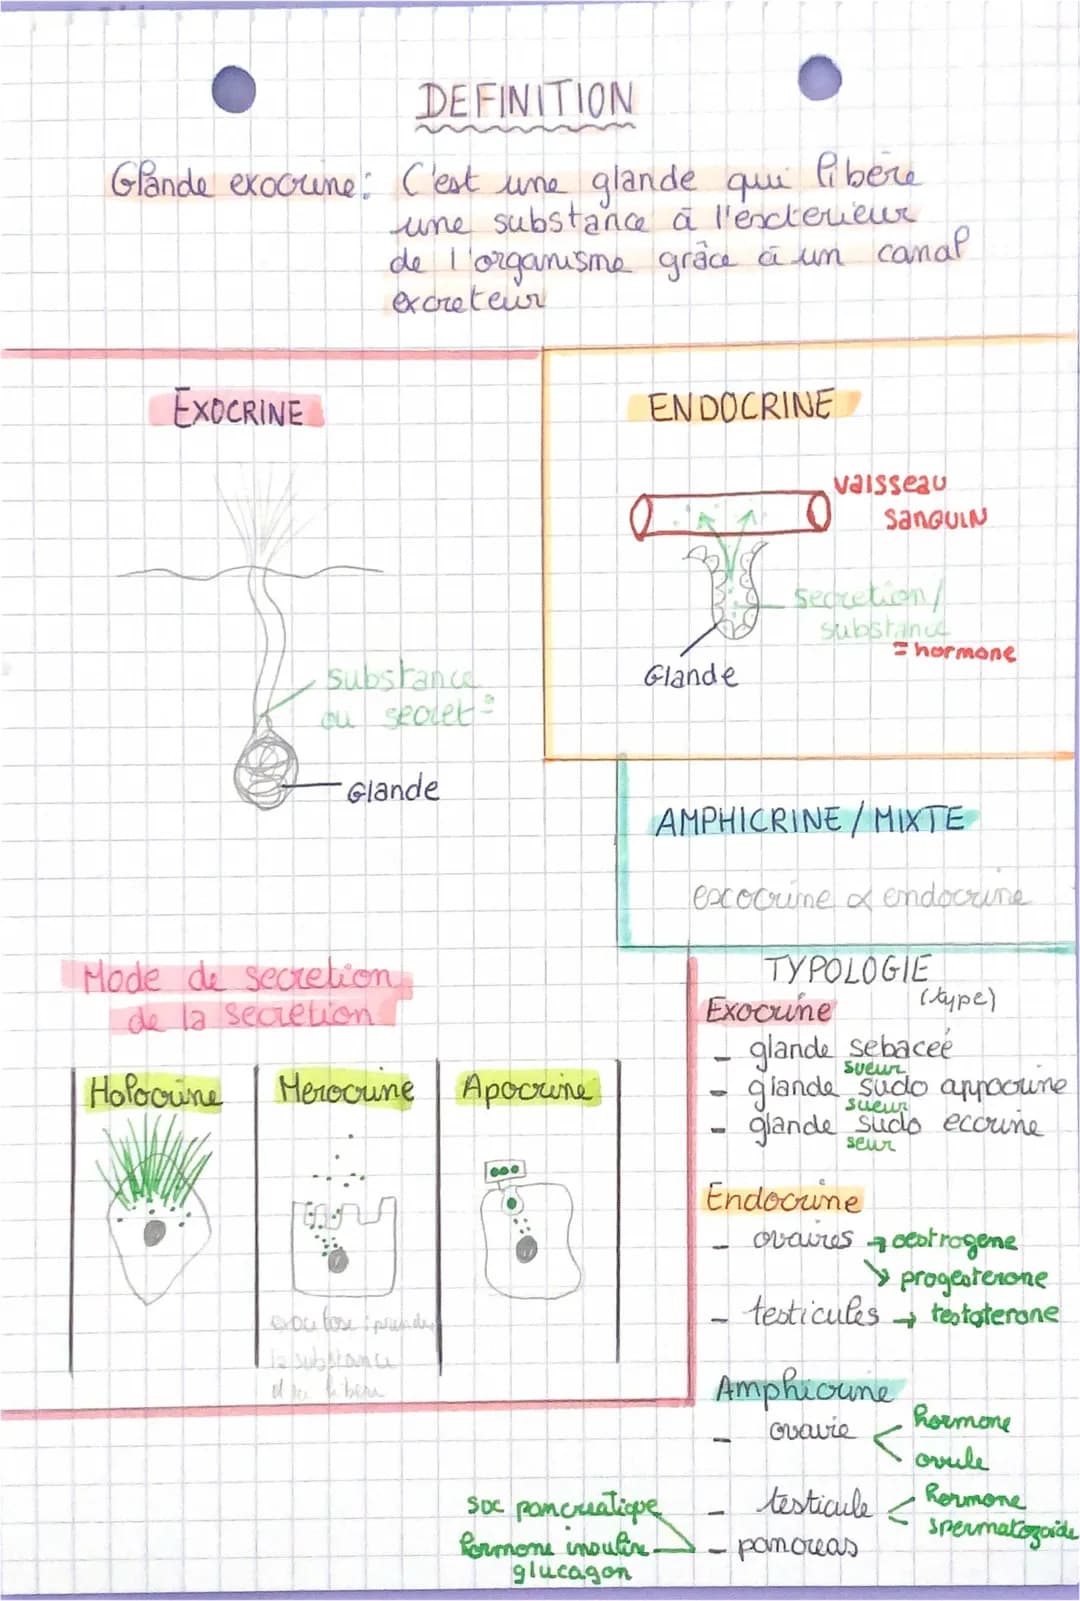 DEFINITION
Glande exocrine: C'est une glande qui libère
une substance à l'exterieur
de l'organisme grâce à un canal
excreteur
EXOCRINE
substance
ou secret
Glande
ENDOCRINE
vaisseau
sanguin
secretion/
substance
= hormone
Glande
AMPHICRINE / MIXTE
exocrine & endocrine
Mode de secretion
de la secretion
Holocrine
Merocrine
la substance
Apocrine
TYPOLOGIE
(type)
Exocrine
- glande sebaceé
sueur
- glande sudo appocrine
sueur
- glande sudo eccrine
seur
Endocrine
- ovaires → oestrogene
↘ progesterone
- testicules → testoterone
Amphicrine
- ovavie < hormone
ovule
- testicule < hormone
spermatozoide
- pancreas
suc pancreatique
hormone insuline
glucagon